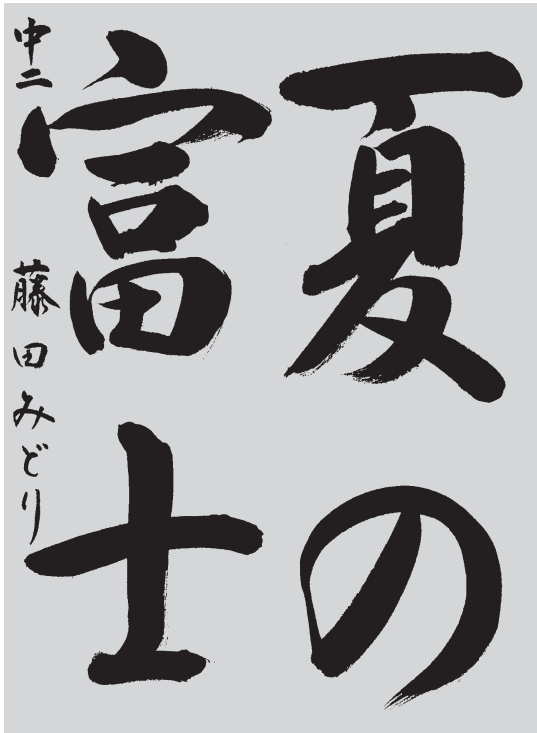 夏の
富士
中二 藤田みどり